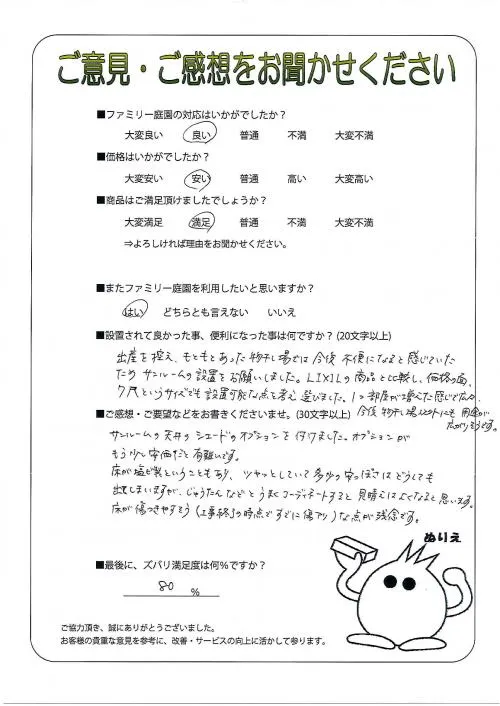 ご意見・ご感想をお聞かせください
■ファミリー庭園の対応はいかがでしたか？
大変良い 良い 普通 不満 大変不満
■価格はいかがでしたか？
大変安い 安い 普通 高い 大変高い
■商品はご満足頂けましたでしょうか？
大変満足 満足 普通 不満 大変不満
⇒よろしければ理由をお聞かせください。
■またファミリー庭園を利用したいと思いますか？
はい どちらとも言えない いいえ
■設置されて良かった事、便利になった事は何ですか？(20文字以上)
出産を控え、もともとあった物干し場では今後不便になると感じていた
ためサンルームの設置をお願いしました。LIXILの商品と比較し、価格の面、
7尺というサイズでも設置可能な点を考え選びました。1つ部屋が増えた感じで広く、
今後物干し場以外にも用途が
広がりそうです。
■ご感想・ご要望などをお書きくださいませ。(30文字以上)
サンルームの天井のシェードのオプションを付けました。オプションが
もう少し安価だと有難いです。
床が塩ビ製ということもあり、ツヤッとしていて多少の安っぽさはどうしても
出てしまいますが、じゅうたんなどとうまくコーディネートすると見晴えはよくなると思います。
床が傷つきやすそう(工事終了の時点ですでに傷アリ)な点が残念です。
ぬりえ
■最後に、ズバリ満足度は何％ですか？
80 ％
ご協力頂き、誠にありがとうございました。
お客様の貴重な意見を参考に、改善・サービスの向上に活かして参ります。